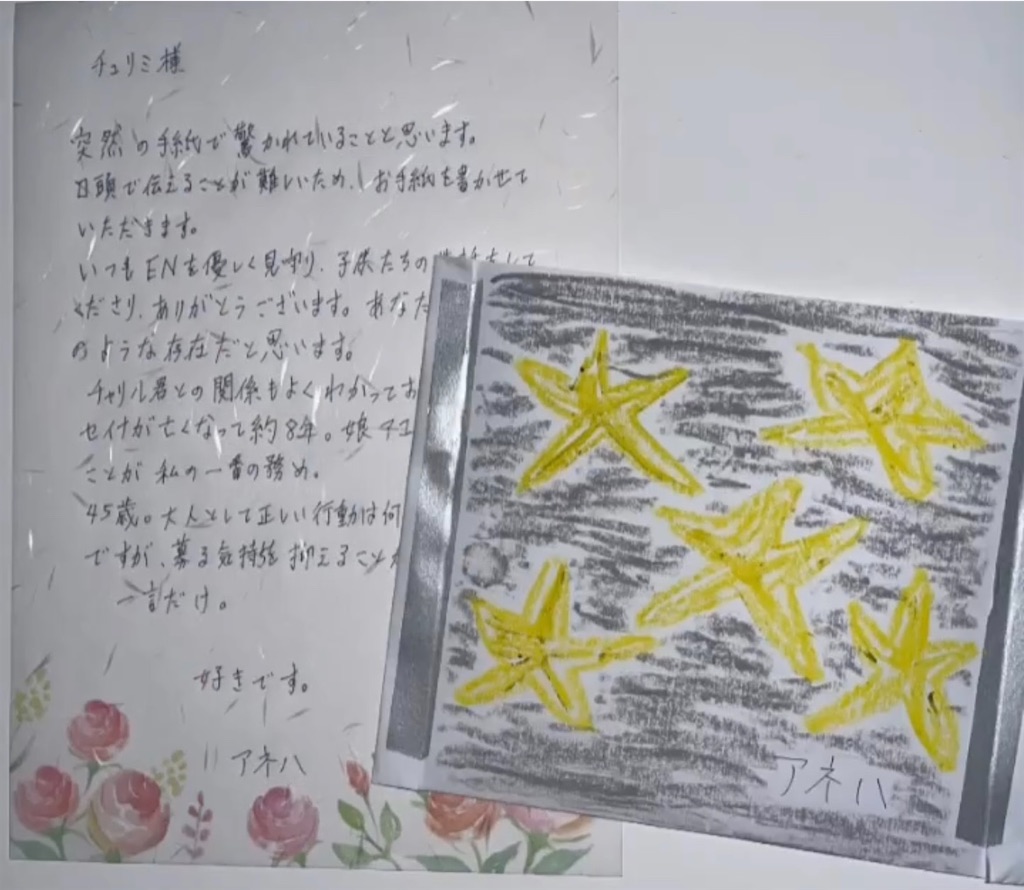 チュリミ様
突然の手紙で驚かれていることと思います。
口頭で伝えることが難しいため、お手紙を書かせて
いただきます。
いつもENを優しく見守り、子供たちの
くださり、ありがとうございます。あなた
のような存在だと思います。
チャリル君との関係もよくわかってお
セイナが亡くなって約8年。娘
ことが私の一番の務め。
45歳。大人として正しい行動は何
ですが、募る気持を抑えることが
一言だけ。
好きです。
アネハ
アネハ